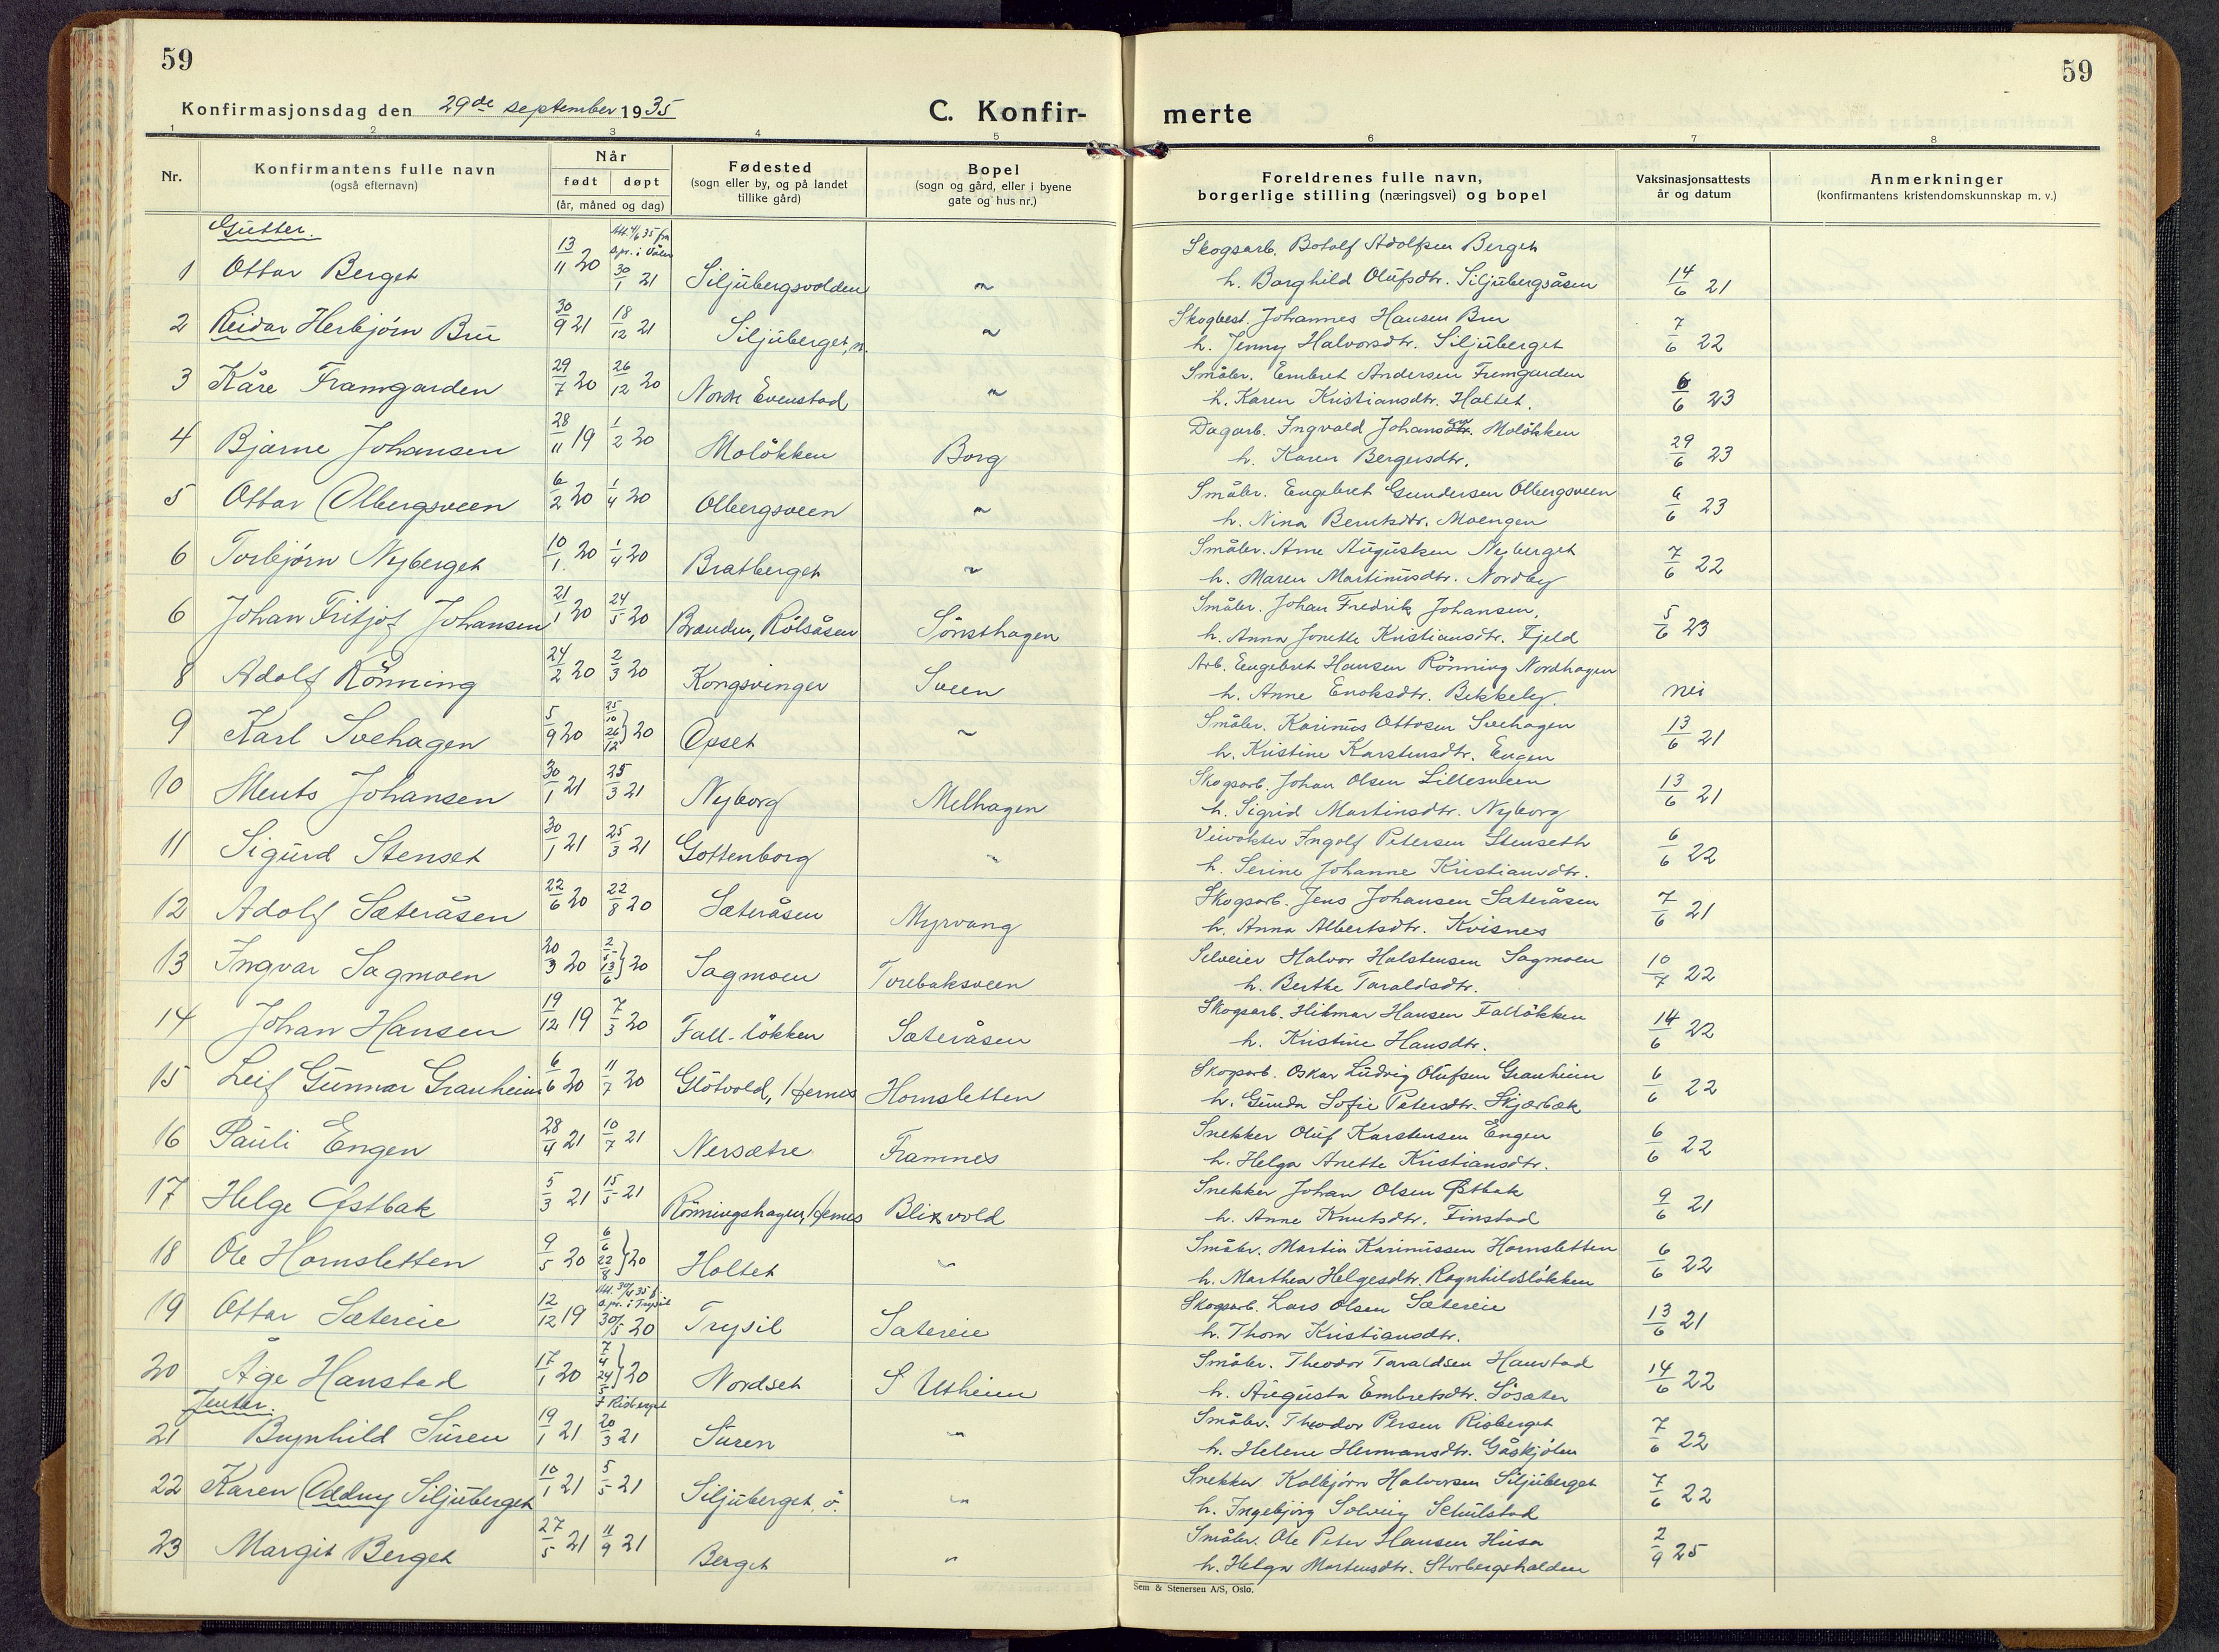 59
59
Konfirmasjonsdag den 29de september 1935
C. Konfir-
merte
1 2 3 4 5 6 7 8
Nr.
Konfirmantens fulle navn
(også efternavn)
Når
født døpt
(år, måned og dag)
Fødested
(sogn eller by, og på landet
tillike gård)
Bopel
(sogn og gård, eller i byene
gate og hus nr.)
Foreldrenes fulle navn,
borgerlige stilling (næringsvei) og bopel
Vaksinasjonsattests
år og datum
Anmerkninger
(konfirmantens kristendomskunnskap m. v.)
Gutter.
1 Ottar Berget 13/11 20 30/1 21 Siljubergsvolden " Skogsarb. Botolf Adolfsen Berget
h. Borghild Olufsdtr. Siljubergsåsen 14/6 21
2 Reidar Herbjörn Bru 30/9 21 18/12 21 Siljuberget, n. " Skogbest. Johannes Hansen Bru
h. Jenny Halvorsdtr. Siljuberget 7/6 22
3 Kåre Framgarden 29/7 20 26/12 20 Nordre Evenstad " Småbr. Embret Andersen Fremgarden
h. Karen Kristiansdtr. Holtet. 6/6 23
4 Bjarne Johansen 28/11 19 1/2 20 Molökken Borg Dagarb. Ingvald Johans Molökken
h. Karen Bergersdtr. 29/6 23
5 Ottar Olbergsveen 6/2 20 1/4 20 Olbergsveen " Småbr. Engebret Gundersen Olbergsveen
h. Nina Berntsdtr. Moengen 6/6 23
6 Torbjörn Nyberget 10/1 20 1/4 20 Bratberget " Småbr. Arne Augustsen Nyberget
h. Maren Martinusdtr. Nordby 7/6 22
6 Johan Fritjof Johansen 21/1 20 24/5 20 Branden, Rölsåsen Sönsthagen Småbr. Johan Fredrik Johansen,
h. Anna Jonette Kristiansdtr. Fjeld 5/6 23
8 Adolf Rönning 24/2 20 2/3 20 Kongsvinger Sveen Arb. Engebret Hansen Rönning Nordhagen
h. Anne Enoksdtr. Bekkely. nei
9 Karl Svehagen 5/9 20 25/10 26/12 } 20 Opset " Småbr. Karinus Ottosen Svehagen
h. Kristine Karstensdtr. Engen 13/6 21
10 Ments Johansen 30/1 21 25/3 21 Nyborg Melhagen Skogsarb. Johan Olsen Lillesveen
h. Sigrid Martinsdtr. Nyborg 13/6 21
11 Sigurd Stenset 30/1 21 25/3 21 Gottenborg " Veivokter Ingolf Petersen Stenseth
h. Serine Johanne Kristiansdtr. 6/6 22
12 Adolf Sæteråsen 22/6 20 22/8 20 Sæteråsen Myrvang Skogsarb. Jens Johansen Sæteråsen
h. Anna Albertsdtr. Kvisnes 7/6 21
13 Ingvar Sagmoen 20/3 20 2/5 13/6 } 20 Sagmoen Torebaksveen Selveier Halvor Halstensen Sagmoen
h. Berthe Taraldsdtr. 10/7 22
14 Johan Hansen 19/12 19 7/3 20 Fall-lökken Sæteråsen Skogsarb. Hilmar Hansen Fallökken
h. Kristine Hansdtr. 14/6 22
15 Leif Gunnar Granheim 6/6 20 11/7 20 Glötvold, Hernes Hornsletten Skogsarb. Oskar Ludvig Olufsen Granheim
h. Gunda Sofie Petersdtr. Skjærbæk 6/6 22
16 Pauli Engen 28/4 21 10/7 21 Nersætre Framnes Snekker Oluf Karstensen Engen
h. Helga Anette Kristiansdtr. 6/6 22
17 Helge Østbak 5/3 21 15/5 21 Rönningshagen, Hernes Blixvold Snekker Johan Olsen Østbak
h. Anne Knutsdtr. Finstad 9/6 21
18 Ole Hornsletten 9/5 20 6/6 22/8 } 20 Holtet " Småbr. Martin Karinussen Hornsletten
h. Marthea Helgesdtr. Ragnhildslökken 6/6 22
19 Ottar Sætereie 12/12 19 30/5 20 Trysil Sætereie Skogsarb. Lars Olsen Sætereie
h. Thora Kristiansdtr. 13/6 21
20 Åge Hanstad 17/1 20 7/4 24/5 } 20 Nordset S Utheim Småbr. Theodor Taraldsen Hanstad
h. Augusta Embretsdtr. Sösæter 14/6 22
Jenter.
21 Bugnhild Suren 19/1 21 20/3 21 Suren " Småbr. Theodor Persen Risberget
h. Helene Hermansdtr. Gåskjölen 7/6 22
22 Karen Oddny Siljuberget 10/1 21 5/5 21 Siljuberget ö. " Snekker Kolbjörn Halvorsen Siljuberget
h. Ingebjörg Solveig Schulstad 7/6 22
23 Margit Berget 27/5 21 11/9 21 Berget " Småbr. Ole Peter Hansen Husa
h. Helga Mortensdtr. Storbergshalden 2/9 25
Sem & Stenersen A/S, Oslo.